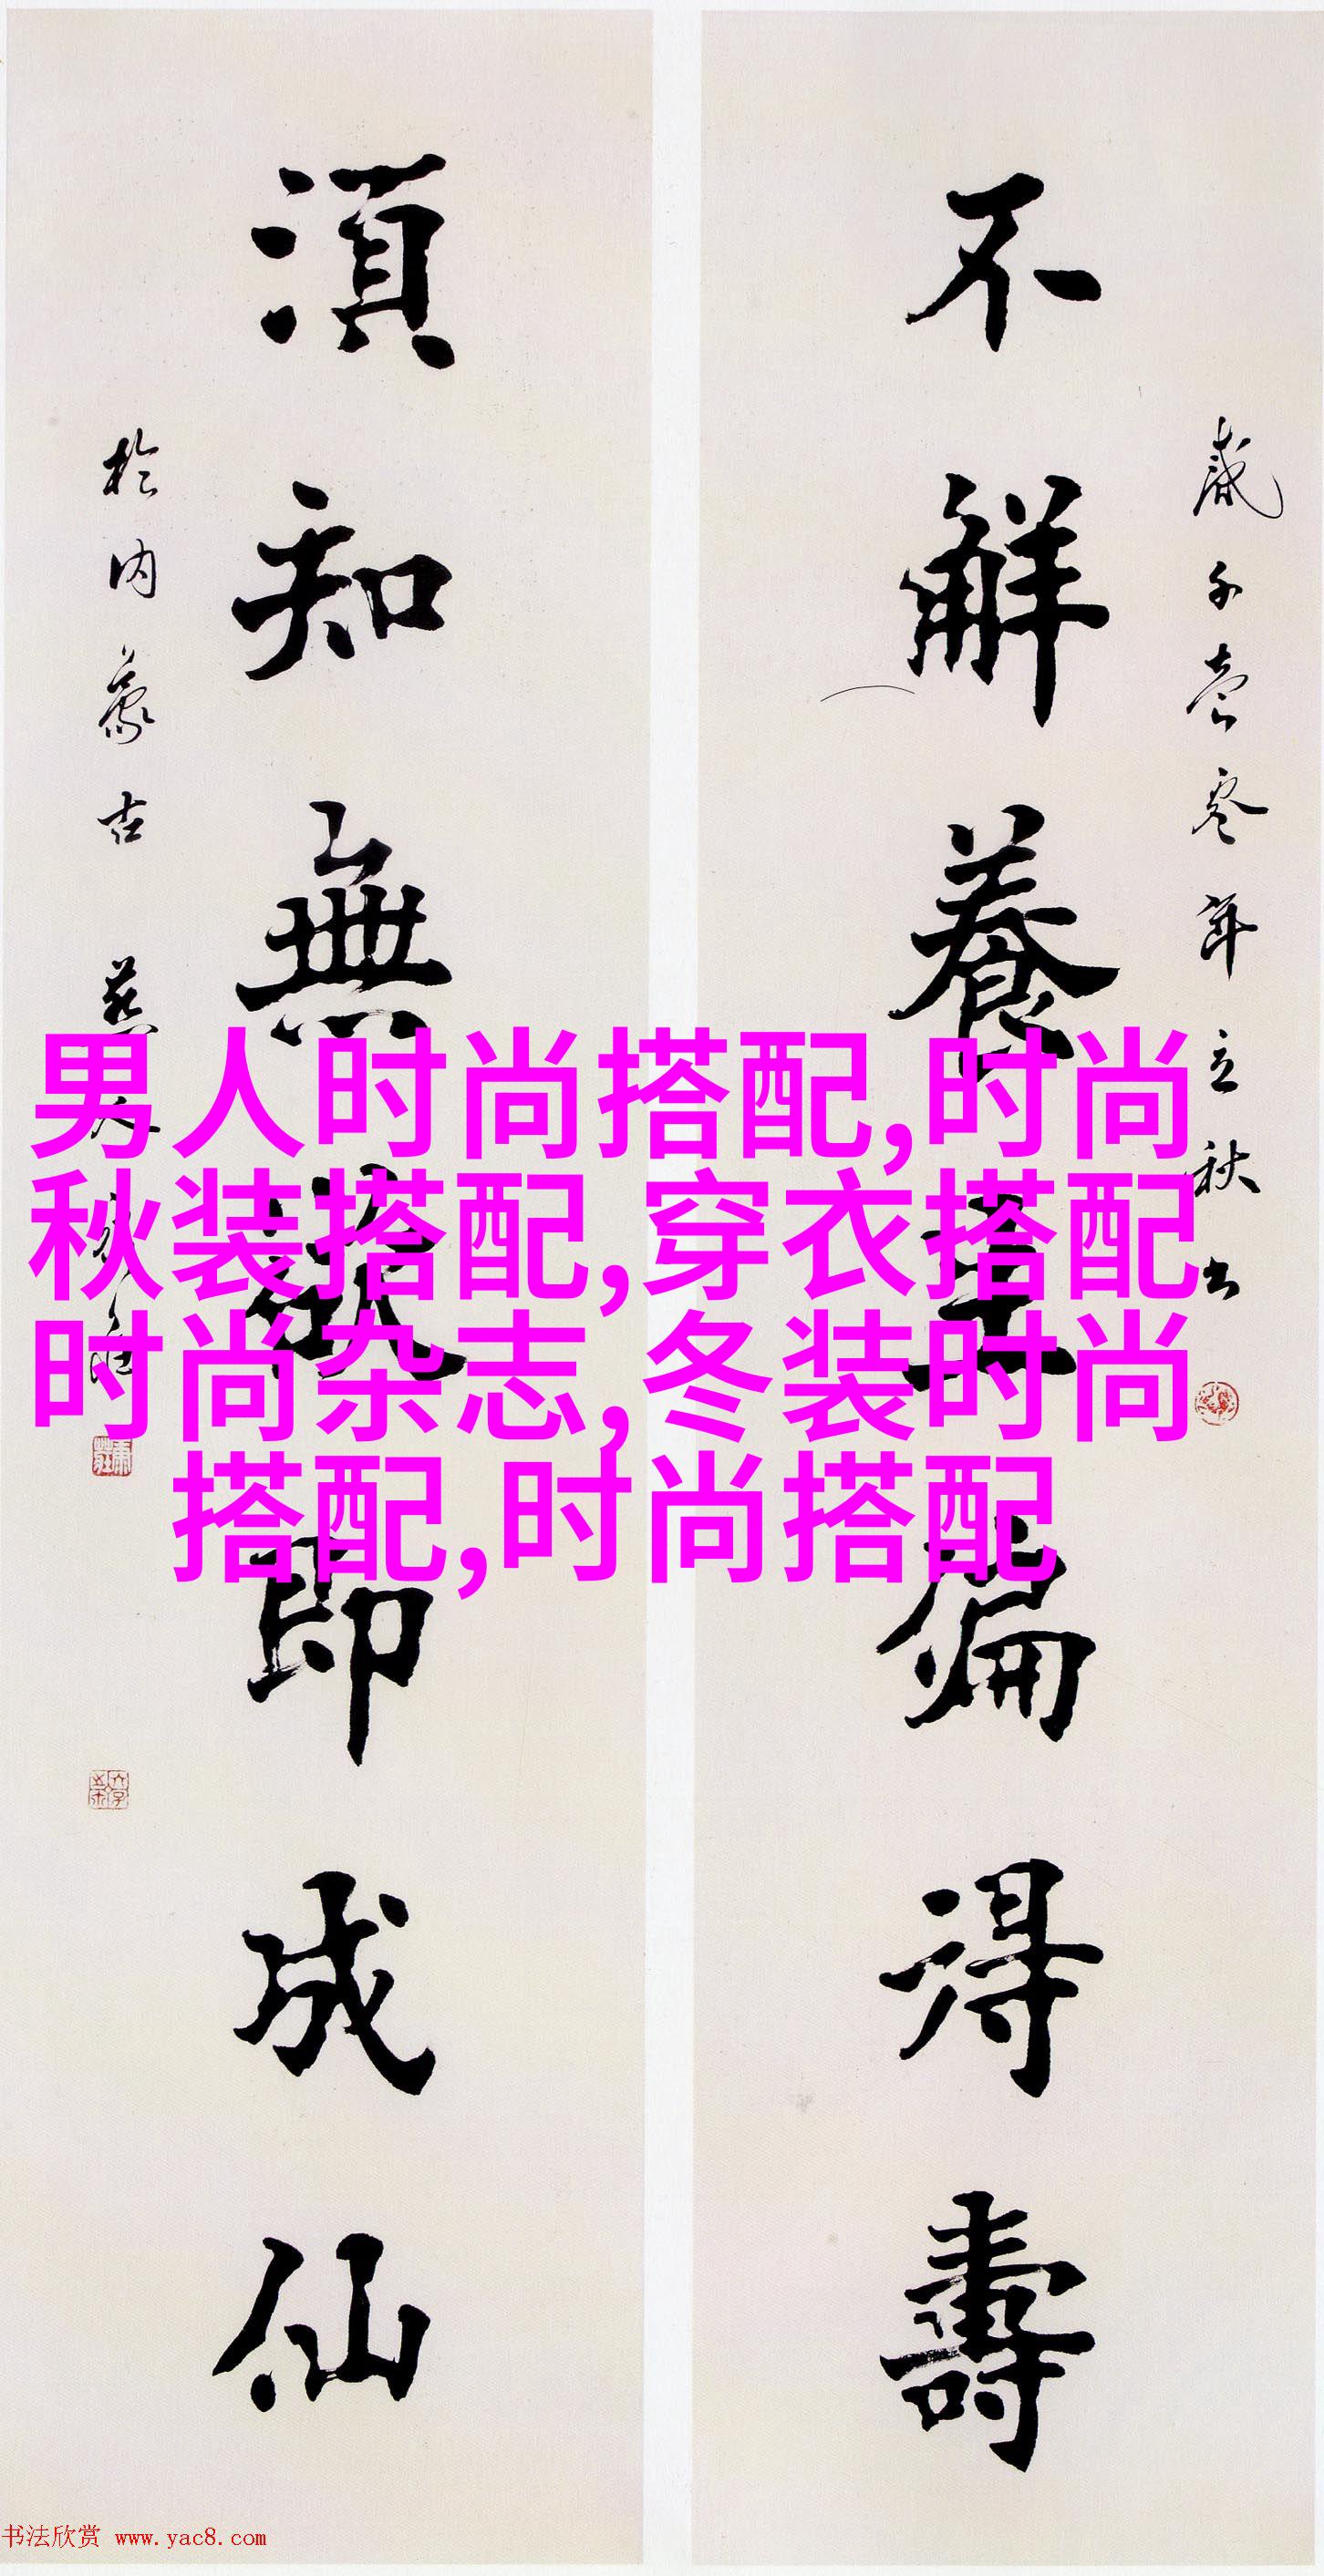 不解養生偏得壽
歲千壹零年立秋書
須知無欲即成仙
於内蒙古
男人时尚搭配,时尚
秋装搭配,穿衣搭配
时尚杂志,冬装时尚
搭配,时尚搭配
书法欣赏 www.yac8.com